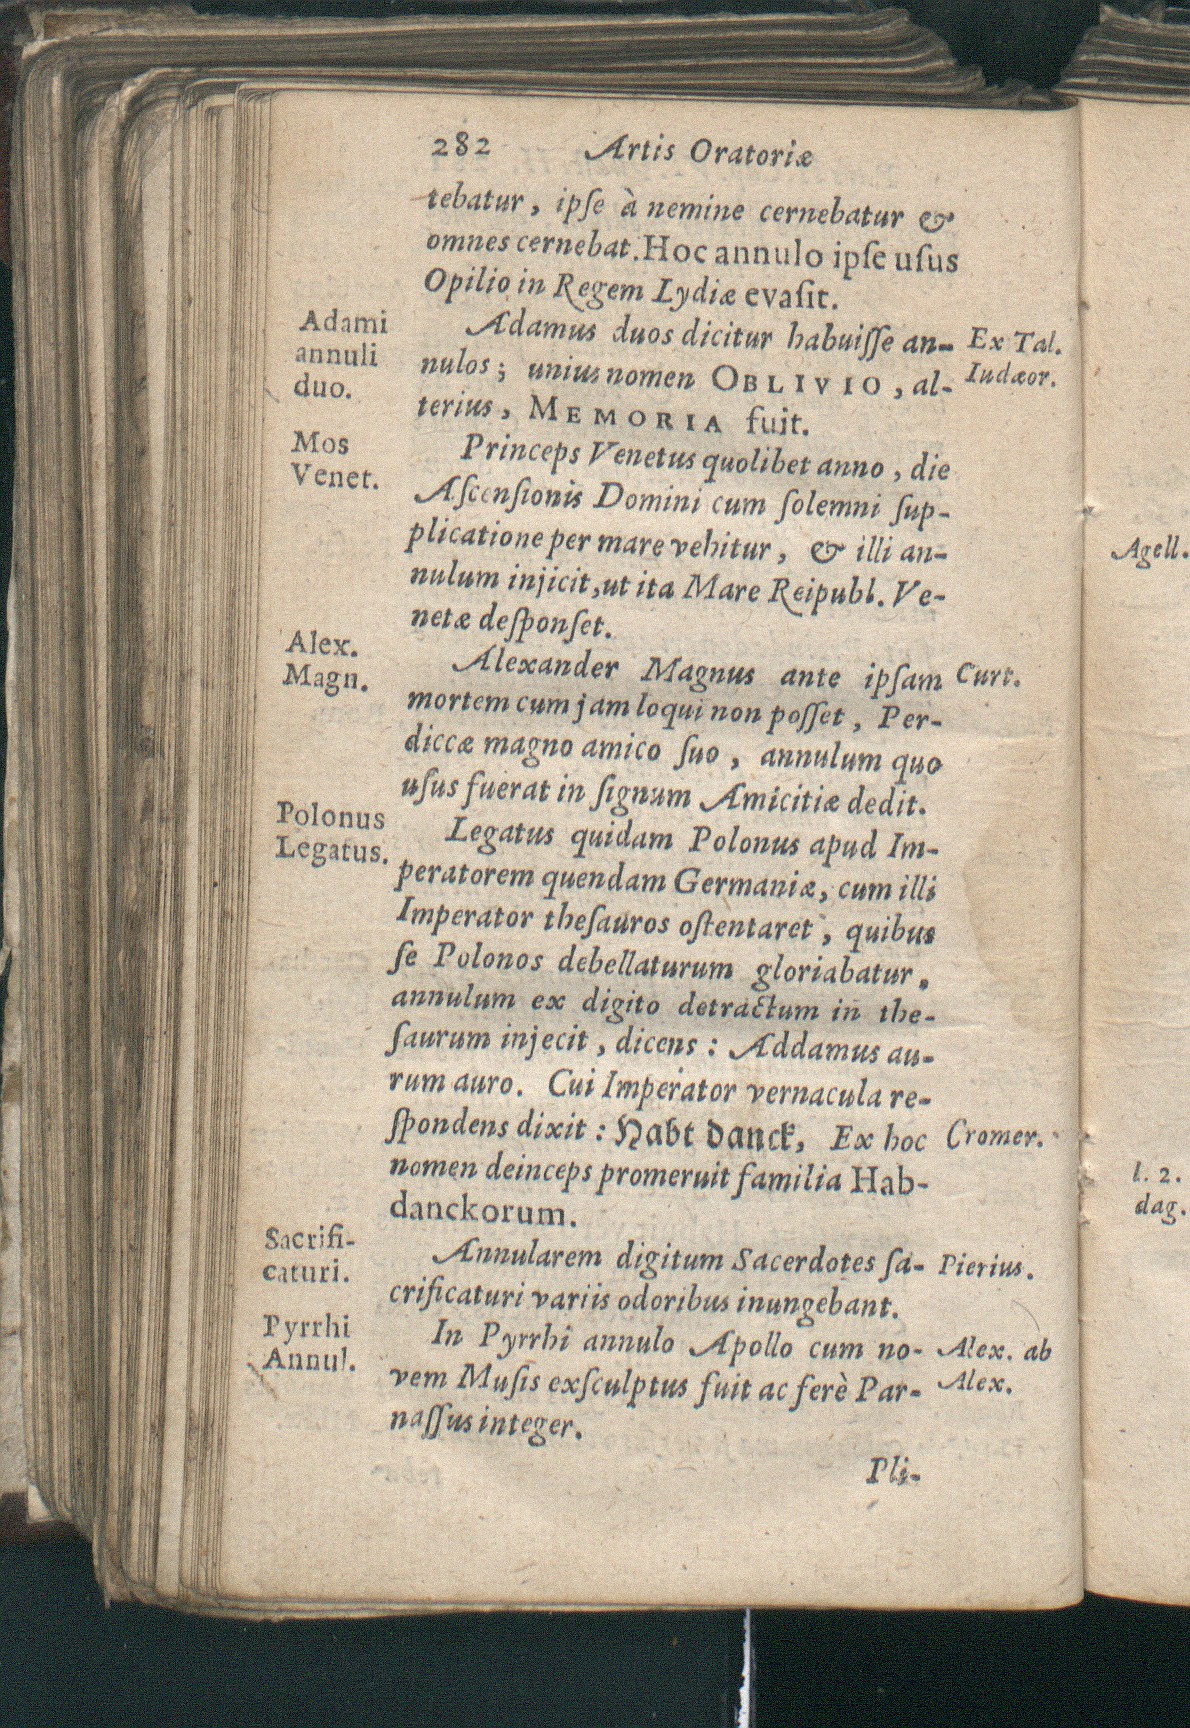 282 Artis Oratoriæ
tebatur, ipſe à nemine cernebatur &
omnes cernebat. Hoc annulo ipſe uſus
Opilio in Regem Lydiæ evaſit.
Adami
annuli
duo.
Adamus duos dicitur habuiſſe an-
nulos; unius nomen OBLIVIO, al-
terius, MEMORIA fuit.
Ex Tal.
Iudæor.
Mos
Venet.
Princeps Venetus quolibet anno, die
Aſcenſionis Domini cum ſolemni ſup-
plicatione per mare vehitur, & illi an-
nulum injicit, ut ita Mare Reipubl. Ve-
netæ deſponſet.
Alex.
Magn.
Alexander Magnus ante ipſam
mortem cum jam loqui non poſſet, Per-
diccæ magno amico ſuo, annulum quo
uſus fuerat in ſignum Amicitiæ dedit.
Curt.
Polonus
Legatus.
Legatus quidam Polonus apud Im-
peratorem quendam Germaniæ, cum illi
Imperator theſauros oſtentaret, quibus
ſe Polonos debellaturum gloriabatur,
annulum ex digito detractum in the-
ſaurum injecit, dicens: Addamus au-
rum auro. Cui Imperator vernacula re-
ſpondens dixit: Habt danck, Ex hoc
nomen deinceps promeruit familia Hab-
danckorum.
Cromer.
Sacrifi-
caturi.
Annularem digitum Sacerdotes ſa-
crificaturi variis odoribus inungebant.
Pierius.
Pyrrhi
Annul.
In Pyrrhi annulo Apollo cum no-
vem Muſis exſculptus fuit ac ferè Par-
naſſus integer.
Alex. ab
Alex.
Pli-
Agell.
l. 2.
dag.